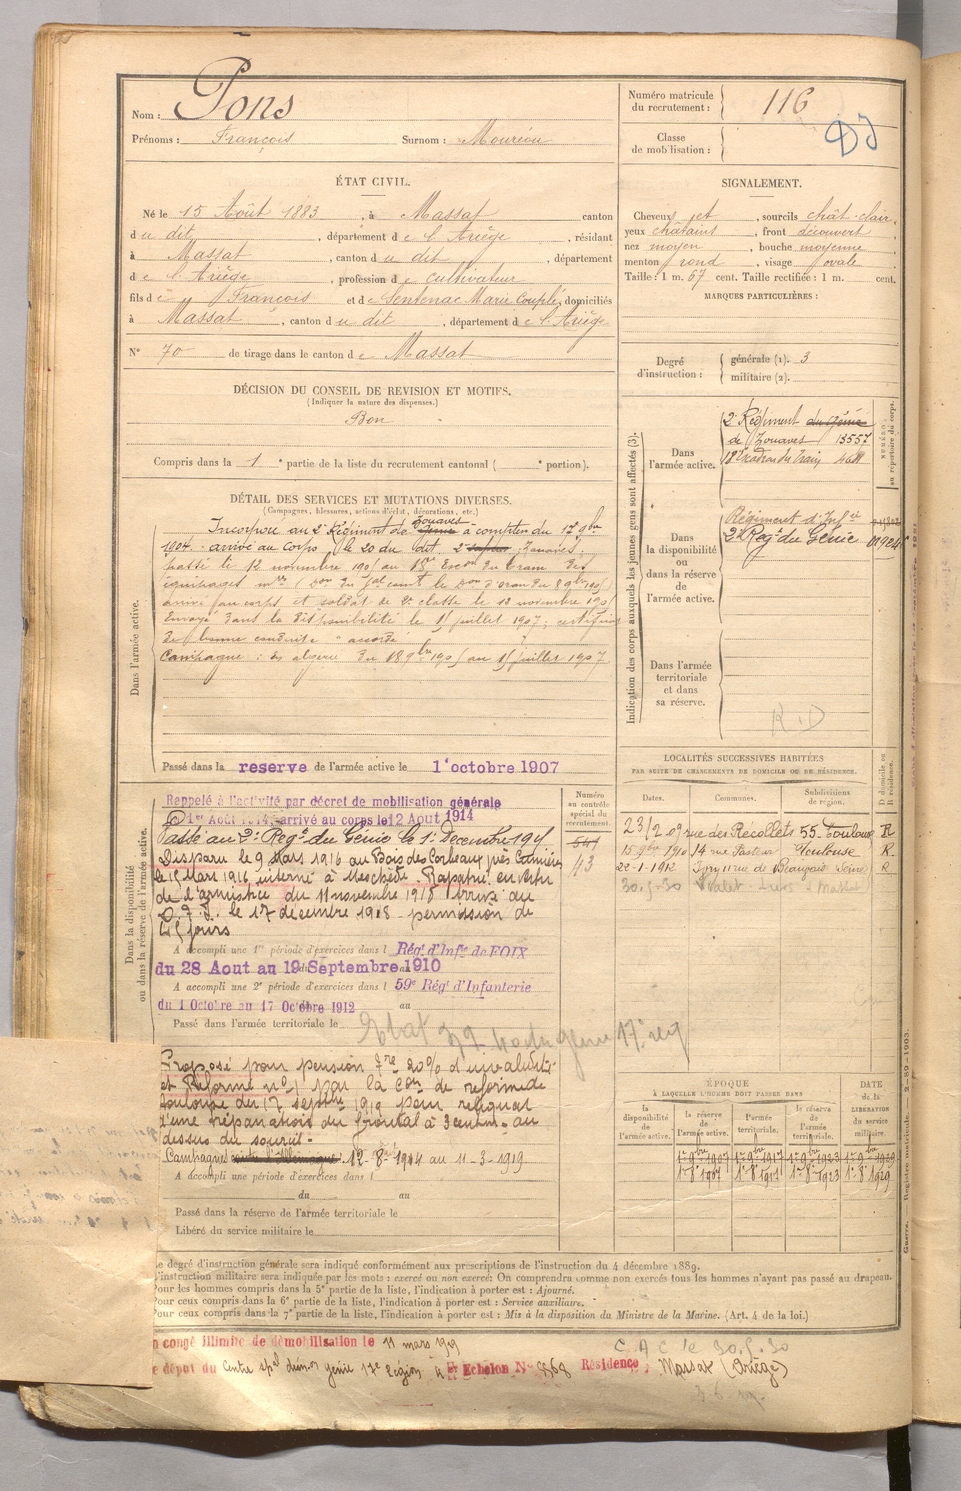 Nom : Pons
Prénoms : François Surnom : Moureou
Numéro matricule du recrutement : 116
Classe de mobilisation :
ÉTAT CIVIL.
Né le 15 Août 1883, à Massat canton
du dit, département de l'Ariège, résidant
à Massat, canton du dit, département
de l'Ariège, profession de cultivateur
fils de François et de Sentenac Marie Couplé, domiciliés
à Massat, canton du dit, département de l'Ariège
N° 70 de tirage dans le canton de Massat
SIGNALEMENT.
Cheveux et, sourcils chât. clair,
yeux châtains, front découvert,
nez moyen, bouche moyenne
menton rond, visage ovale
Taille : 1 m. 67 cent. Taille rectifiée : 1 m. cent.
MARQUES PARTICULIÈRES :
Degré d'instruction : générale (1). 3
militaire (2).
DÉCISION DU CONSEIL DE REVISION ET MOTIFS.
(Indiquer la nature des dispenses.)
Bon
Compris dans la 1e partie de la liste du recrutement cantonal ( e portion).
DÉTAIL DES SERVICES ET MUTATIONS DIVERSES.
(Campagnes, blessures, actions d'éclat, décorations, etc.)
Dans l'armée active.
Incorporé au 2e Régiment de Zouaves à compter du 17 9bre
1904. arrivé au Corps le 20 du dit, 2e Zouaves.
passé le 12 novembre 190 au 18e Esc on du Train des
équipages mres
arrivé au corps et soldat de 2e classe le 13 novembre 190
Envoyé dans la disponibilité le 1 juillet 1907; certificat
de bonne conduite "accordé"
Campagne : en algérie du 18 9bre 190 au 1 juillet 1907
Passé dans la reserve de l'armée active le 1er octobre 1907
Indication des corps auxquels les jeunes gens sont affectés (3).
NUMÉRO au répertoire du corps.
Dans l'armée active.
2e Régiment du Génie
de Zouaves 13557
18e Escadron du Train
Dans la disponibilité ou dans la réserve de l'armée active.
Régiment d'Infie
2e Reg. du Génie
Dans l'armée territoriale et dans sa réserve.
R.D
LOCALITÉS SUCCESSIVES HABITÉES
PAR SUITE DE CHANGEMENTS DE DOMICILE OU DE RÉSIDENCE.
Dates. Communes. Subdivisions de région. D domicile ou R résidence.
23/2 09 rue des Récollets 55. Toulouse R
15 9bre 1910 14 rue Pasteur Toulouse R.
22-1-1912 Ivry 11 rue de Beaugois Seine R
30-5-30
Dans la disponibilité ou dans la réserve de l'armée active.
Numéro au contrôle spécial du recrutement.
541
43
Rappelé à l'activité par décret de mobilisation générale
du 1er Août 1914, arrivé au corps le 12 Aout 1914
Passé au 2e Reg. du Génie le 1er Décembre 191
Disparu le 9 Mars 1916 au Bois des Corbeaux près Cumières
le 15 Mars 1916 interné à Meschede. Rapatrié en vertu
de l'armistice du 11 novembre 1918. Arrivé au
D.T.I. le 17 décembre 1918 - permission de
jours
A accompli une 1re période d'exercices dans l Régt. d'Infie de FOIX
du 28 Aout au 19 Septembre 1910
A accompli une 2e période d'exercices dans l 59e Régt d'Infanterie
du 1 Octobre au 17 Octobre 1912
Passé dans l'armée territoriale le
Proposé pour pension 7re 20% d'invalidité
et Réforme n° 1 par la Con de réforme de
Toulouse du 17 septbre 1919 pour reliquat
d'une trépanation du frontal à 3 centim. au
dessus du sourcil -
Campagne contre l'Allemagne. 12-8-1914 au 11-3-1919
A accompli une période d'exercices dans l
du au
Passé dans la réserve de l'armée territoriale le
Libéré du service militaire le
ÉPOQUE
À LAQUELLE L'HOMME DOIT PASSER DANS
la disponibilité de l'armée active. la réserve de l'armée active. l'armée territoriale. la réserve de l'armée territoriale. DATE de la LIBÉRATION du service militaire.
1er 9bre 1907 1er 9bre 1917 1er 9bre 1923 1er 9bre 1929
1er 8 1907 1er 8 1917 1er 8 1923 1er 8 1929
Guerre. Registre matricule. — 2-89-1903.
Le degré d'instruction générale sera indiqué conformément aux prescriptions de l'instruction du 4 décembre 1889.
L'instruction militaire sera indiquée par les mots : exercé ou non exercé: On comprendra comme non exercés tous les hommes n'ayant pas passé au drapeau.
Pour les hommes compris dans la 5e partie de la liste, l'indication à porter est : Ajourné.
Pour ceux compris dans la 6e partie de la liste, l'indication à porter est : Service auxiliaire.
Pour ceux compris dans la 7e partie de la liste, l'indication à porter est : Mis à la disposition du Ministre de la Marine. (Art. 4 de la loi.)
n congé illimité de démobilisation le 11 mars 1919 C.A.C le 30.5.30
e dépôt du Centre spal démon génie 17e Région 4e Echelon N° 8868 Résidence : Massat (Ariège)